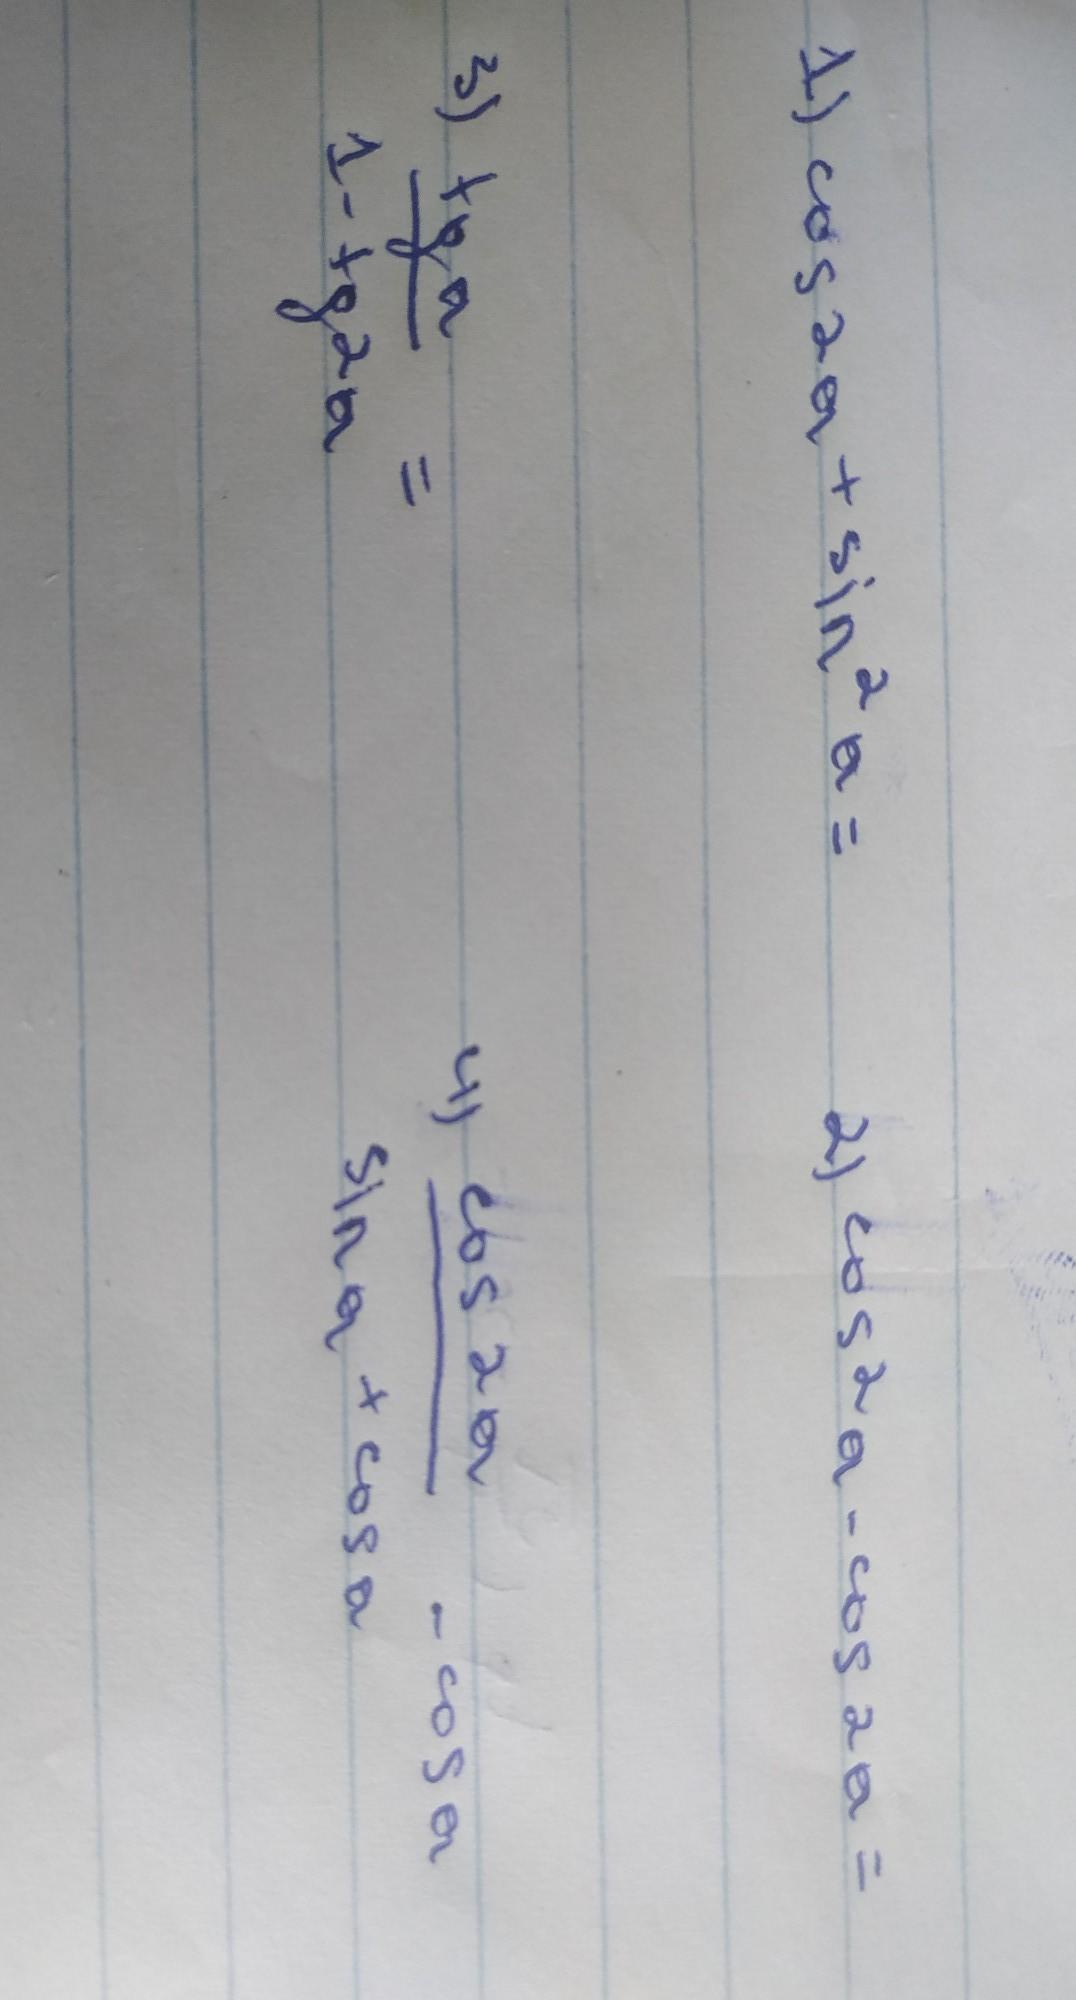 1) cos2a + sin²a =
2) cos2a - cos2a =
3) tga
1 - tg2a =
4) cos2a
sina + cosa - cosa